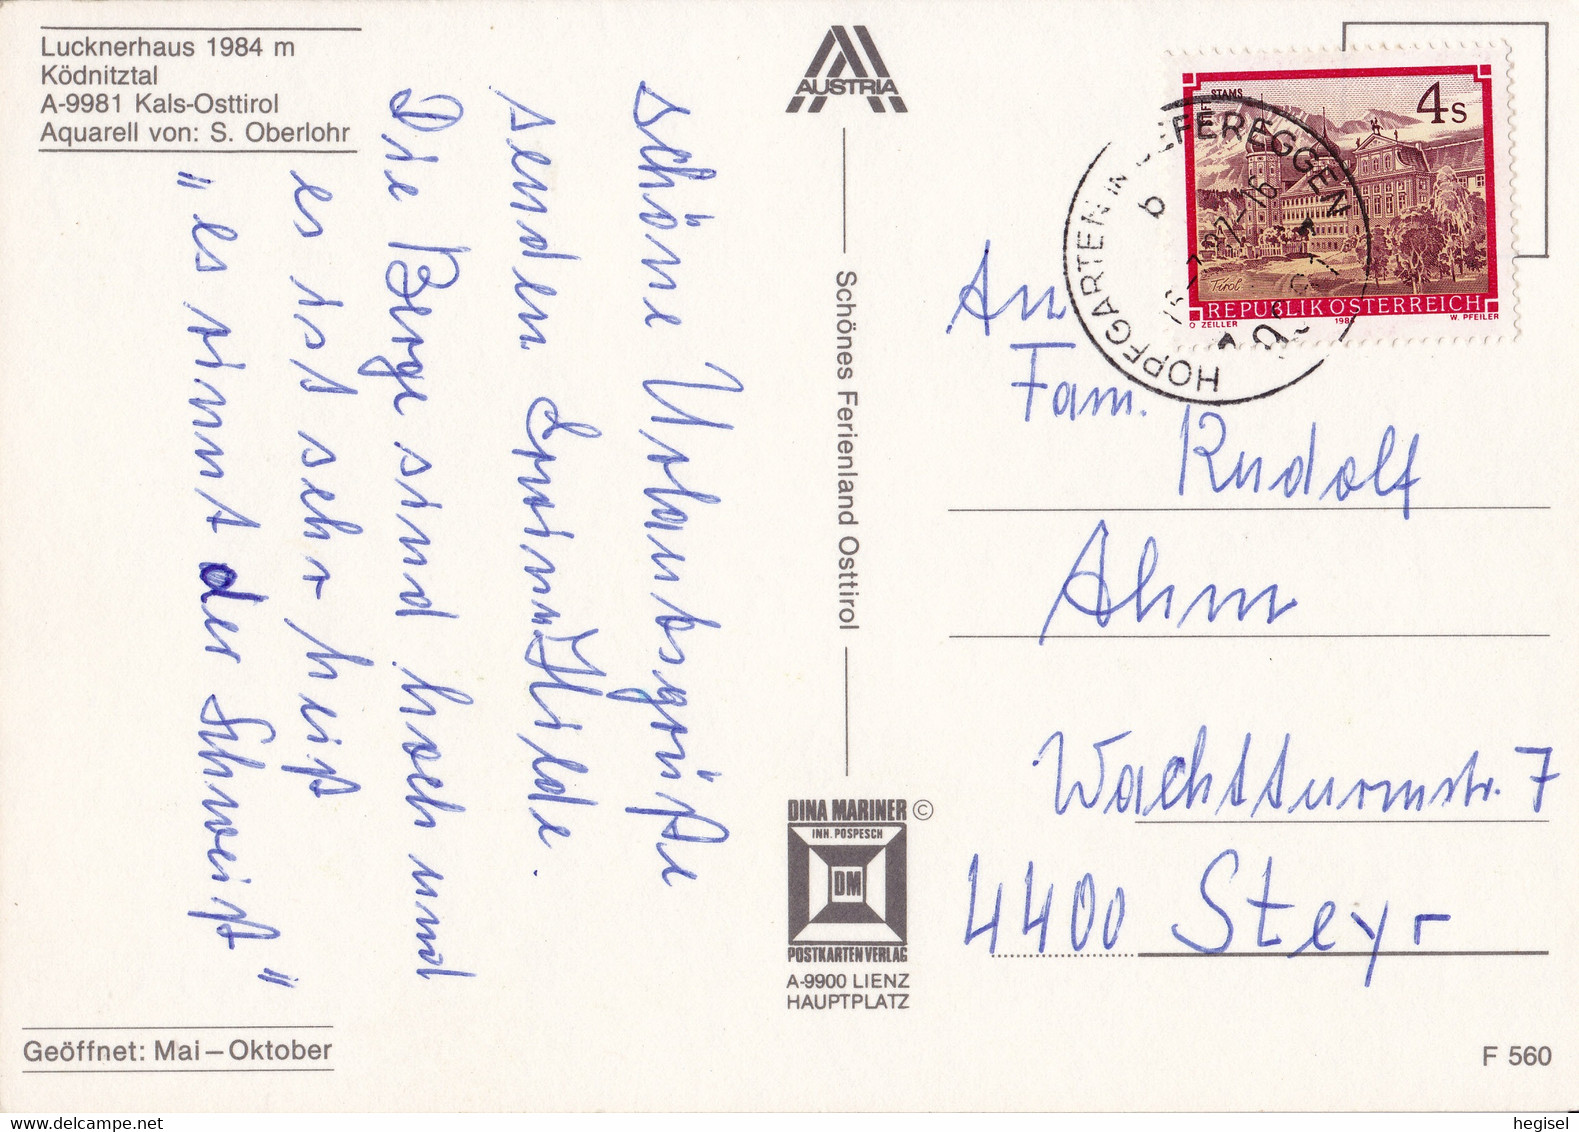 Lucknerhaus 1984 m
Ködnitztal
A-9981 Kals-Osttirol
Aquarell von: S. Oberlohr
schöne Urlaubsgrüße
senden Erwin u. Hilde.
Die Berge sind hoch und
es ist sehr heiß
"es rinnt der Schweiß"
Geöffnet: Mai – Oktober
AUSTRIA
Schönes Ferienland Osttirol
DINA MARINER ©
INH. POSPESCH
DM
POSTKARTENVERLAG
A-9900 LIENZ
HAUPTPLATZ
STIFT STAMS
4 S
Tirol
REPUBLIK ÖSTERREICH
O ZEILLER 1986 W. PFEILER
HOPFGARTEN IN DEFEREGGEN
b
An
Fam.
Rudolf
Ahm
Wachtturmstr. 7
4400 Steyr
F 560
hegisel